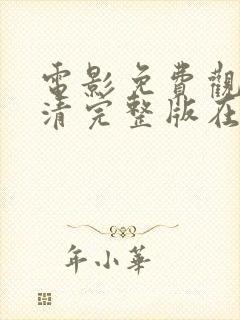 電影免費觀
清完整版在
年小華